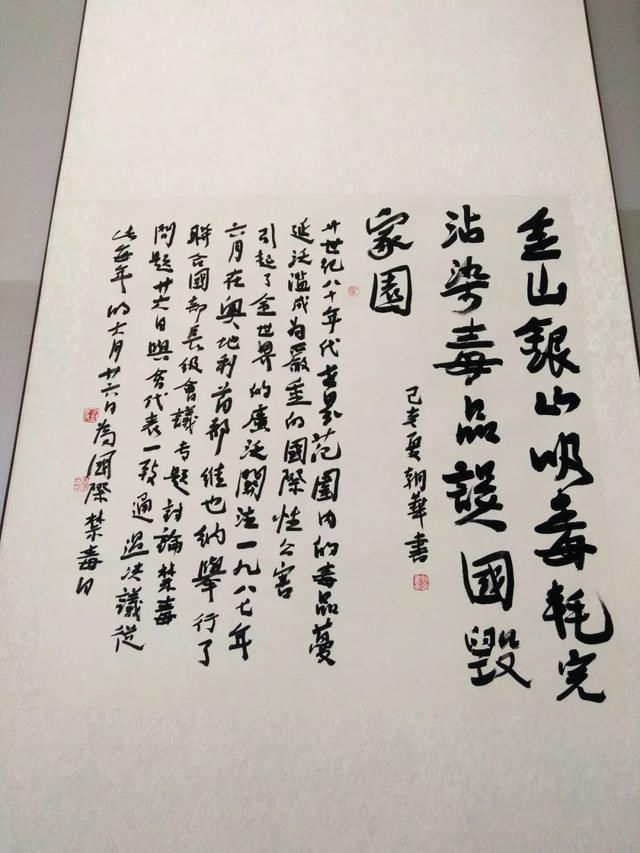 金山銀山吸毒耗完
沾染毒品誤國毀
家園
己亥夏朝華書
廿世纪八十年代世界范圍内的毒品蔓
延泛濫成为嚴重的國際性公害
引起了全世界的廣泛關注一九八七年
六月在奥地利首都维也纳舉行了
聯合國部長级會議专题討論禁毒
問题廿六日與會代表一致通過决議從
此每年的六月廿六日為國際禁毒日